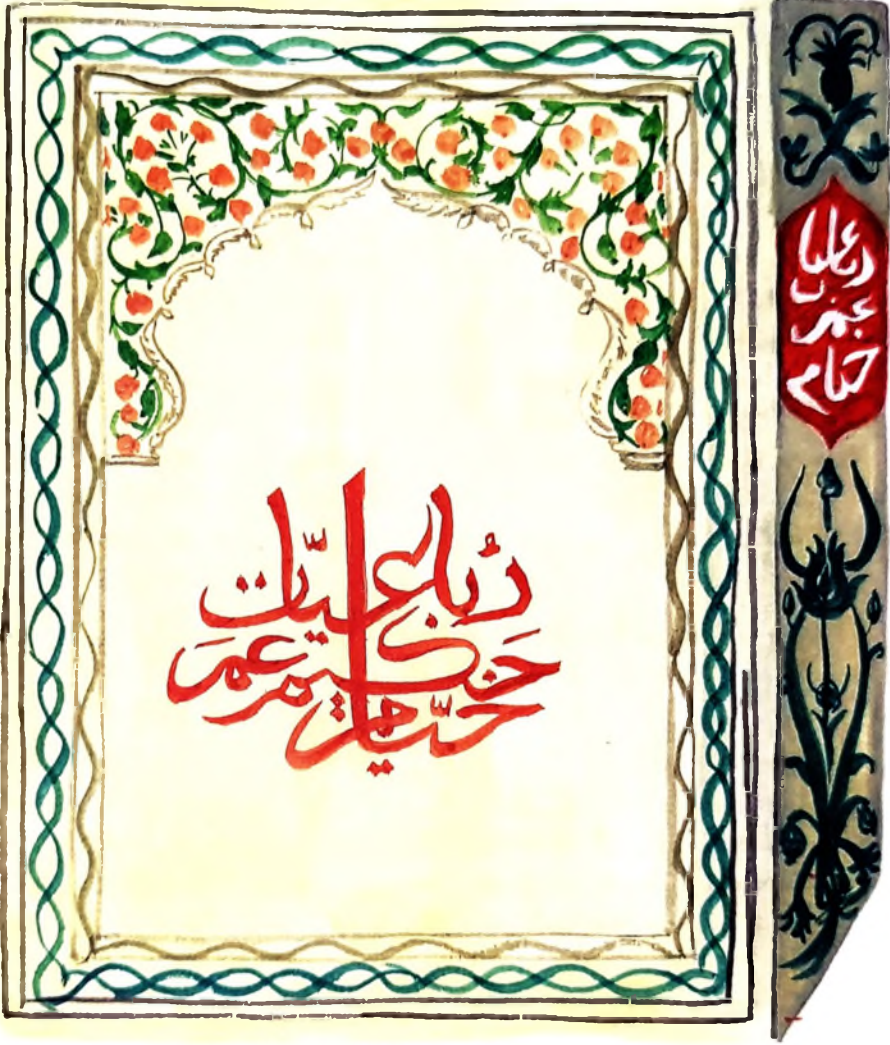 رُباعيّات
حَكيم عمَر
خيّام
رباعیات
عمر
خیام